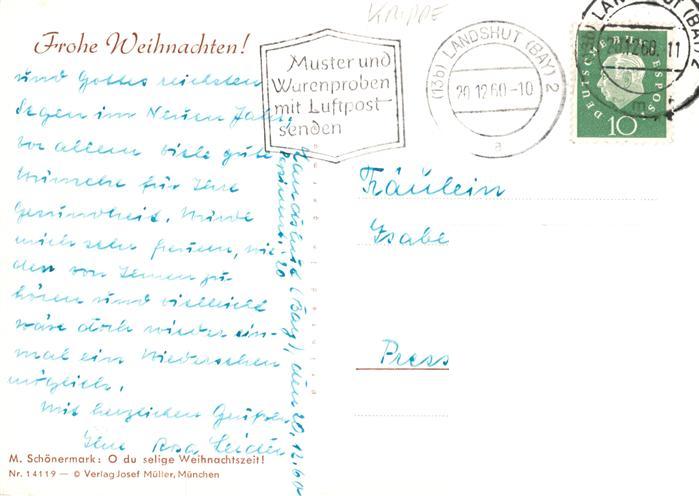 KRIPPE
Frohe Weihnachten!
und Gottes reichsten
Segen im Neuen Jahr,
vor allem viele gute
Wünsche für Ihre
Gesundheit. Würde
mich sehr freuen, wie-
der von Ihnen zu
hören und vielleicht
wäre doch wieder ein-
mal ein Wiedersehen
möglich.
Mit herzlichen Grüßen
Ihre Rosa
Landshut (Bay), den 20.12.60
M. Schönermark: O du selige Weihnachtszeit!
Nr. 14119 — © Verlag Josef Müller, München
Muster und
Warenproben
mit Luftpost
senden
(13b) LANDSHUT (BAY) 2
20.12.60.-10
a
LANDSHUT (BAY) 2
20.12.60. 11
m
DEUTSCHE BUNDESPOST
10
Fräulein
Isabe
Press